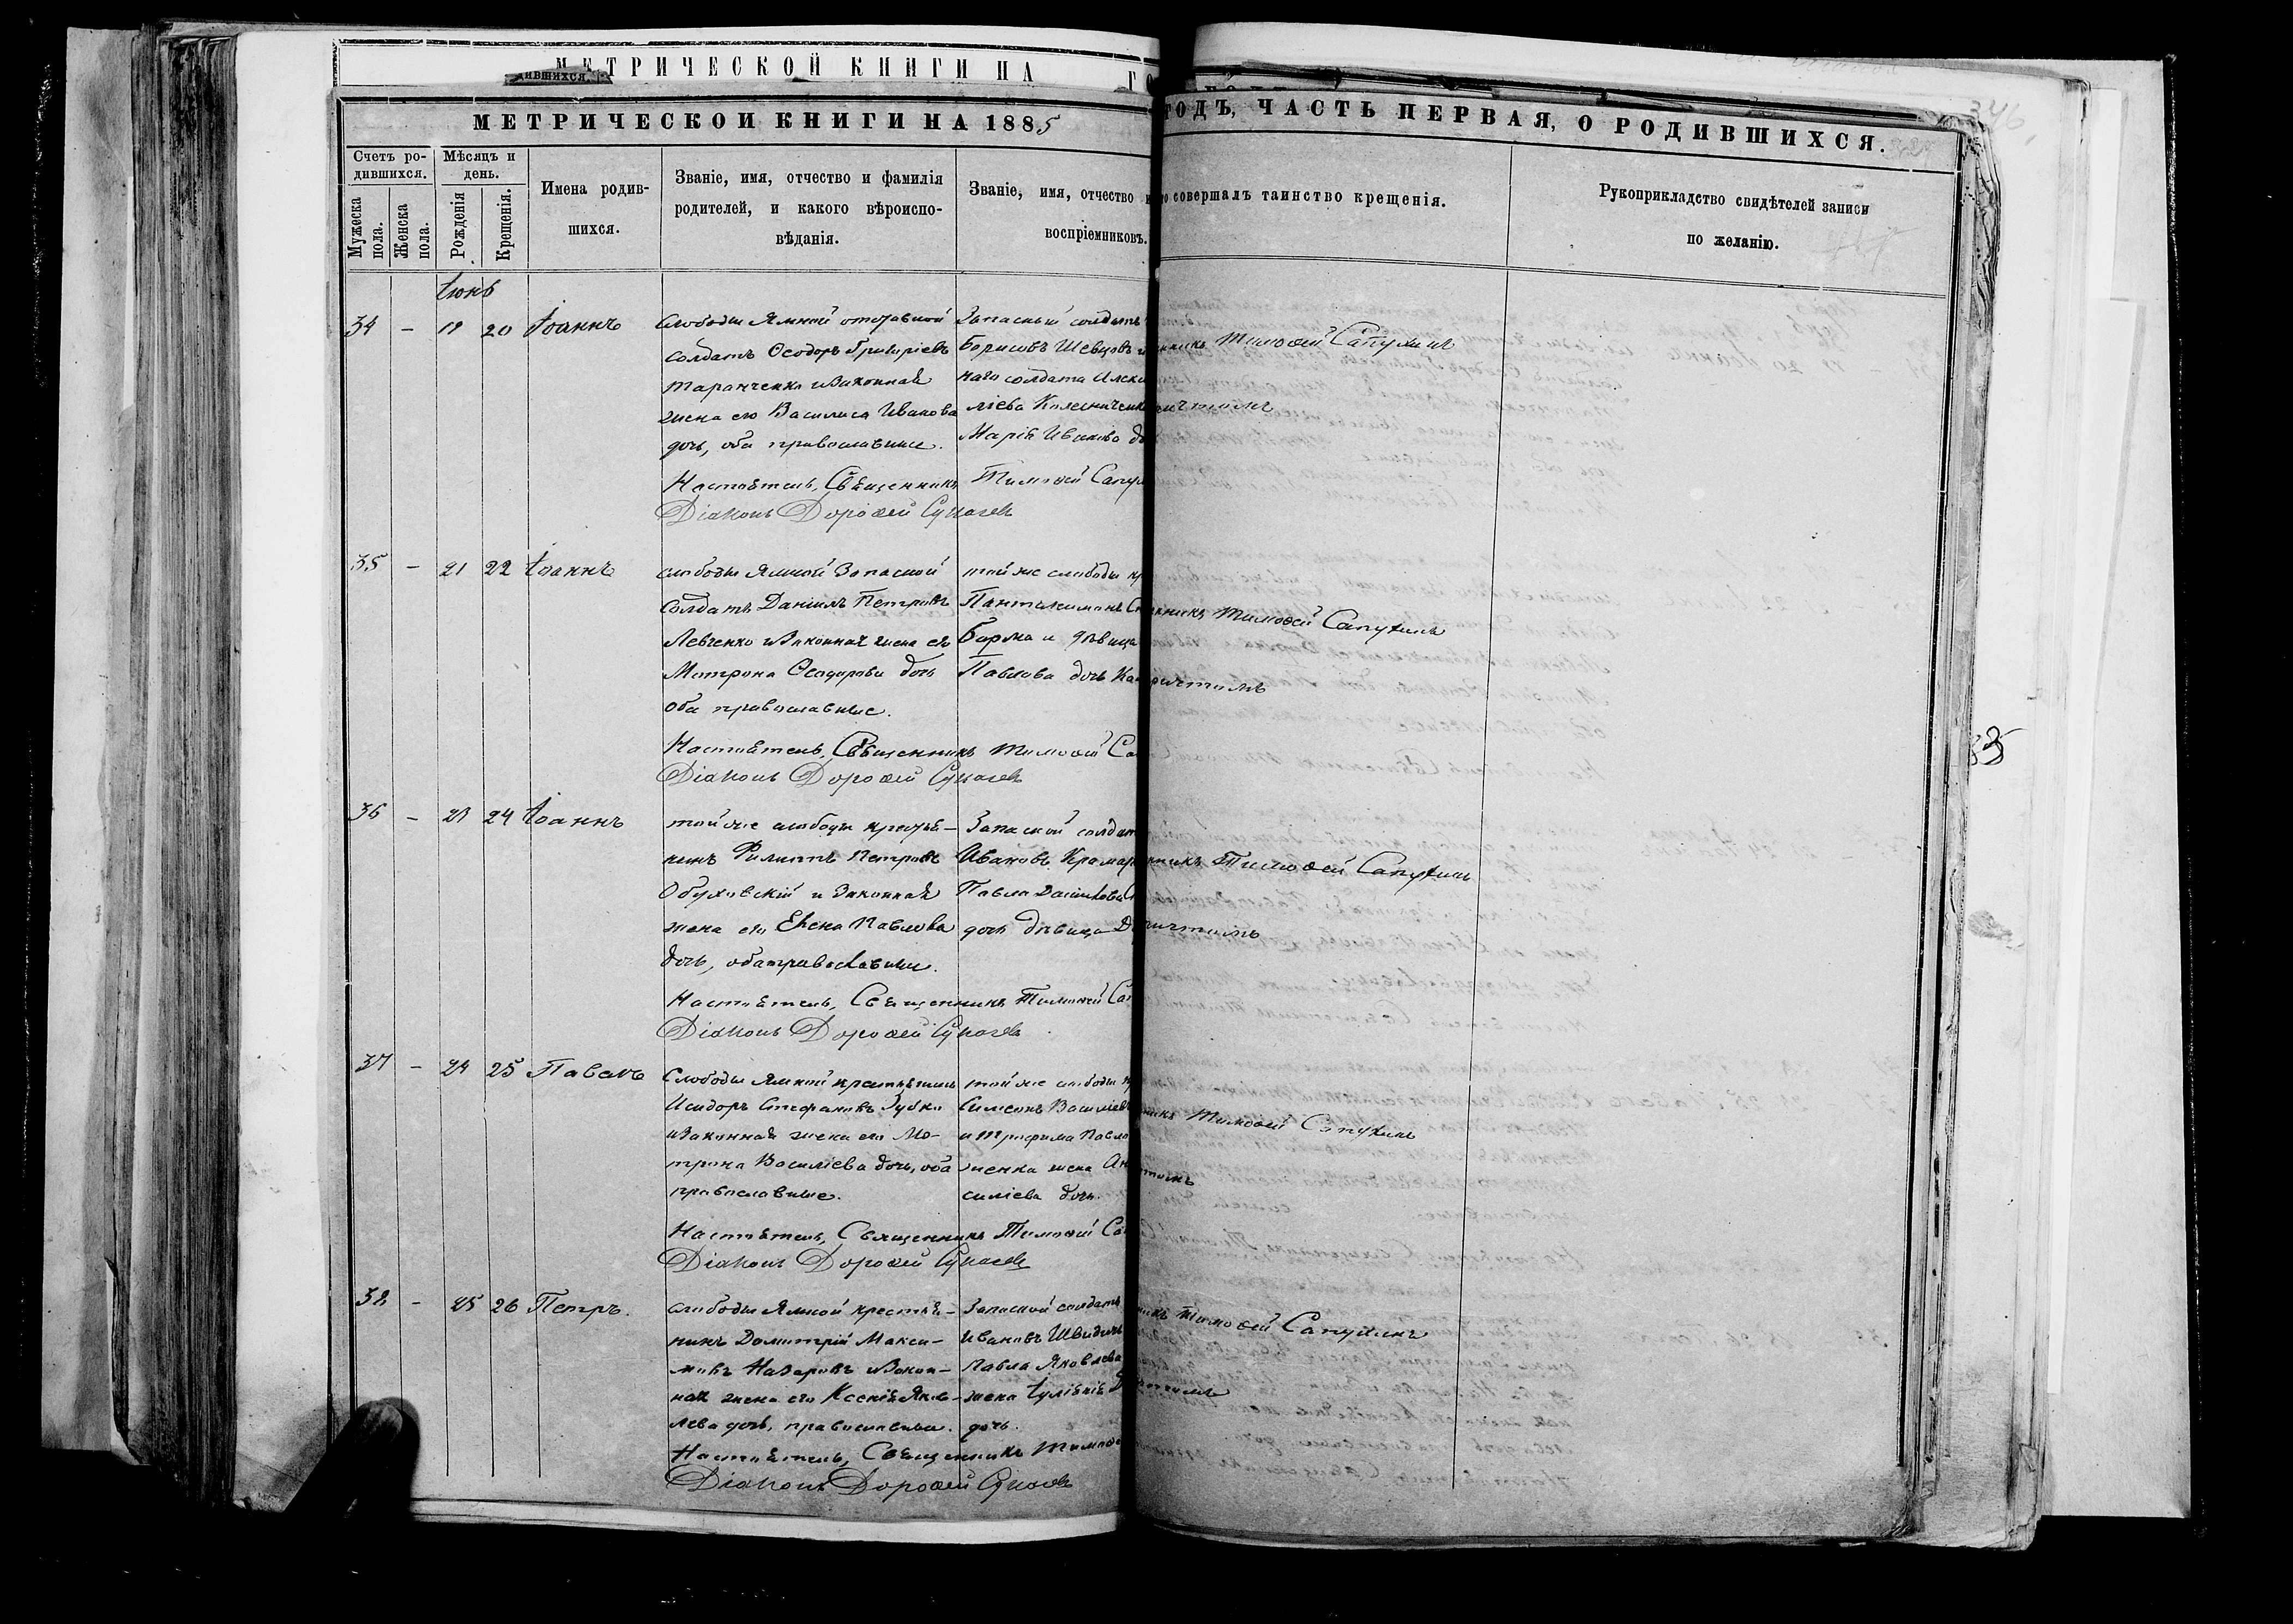 МЕТРИЧЕСКОЙ КНИГИ НА
ДИВШИХСЯ.
МЕТРИЧЕСКОЙ КНИГИ НА 1885
ГОДЪ, ЧАСТЬ ПЕРВАЯ, О РОДИВШИХСЯ.
346
Счетъ ро-
дившихся.
Мужеска
пола.
Женска
пола.
Мѣсяцъ и
день.
Рожденія
Крещенія.
Имена родив-
шихся.
Званіе, имя, отчество и фамилія
родителей, и какого вѣроиспо-
вѣданія.
Званіе, имя, отчество и
воспріемниковъ.
совершалъ таинство крещенія.
Рукоприкладство свидѣтелей записи
по желанію.
Іюнь
34 – 19 20 Іоаннъ
слободы Ямной отставной
солдатъ Ѳеодоръ Григоріевъ
Таранченко и законная
жена его Василиса Иванова
дочь, оба православные.
Запасный солдатъ
Борисовъ Шевцовъ и
наго солдата Алекс
ліева Колесниченко
Марія Иванова до
Тимоѳей Сапухинъ
Настоятель, Священникъ Тимоѳей Сапух
Діаконъ Дороѳей Сукачевъ
35 – 21 22 Іоаннъ
слободы Ямной Запасной
солдатъ Даніилъ Петровъ
Левченко и законная жена его
Матрона Ѳеодорова дочь
оба православные.
той же слободы кр
Пантелимонъ С
Бирма и дѣвица
Павлова дочь Ка
Тимоѳей Сапухинъ
Настоятель, Священникъ Тимоѳей Са
Діаконъ Дороѳей Сукачевъ
36 – 23 24 Іоаннъ
той же слободы крестья-
нинъ Филиппъ Петровъ
Обуховскій и законная
жена его Елена Павлова
дочь, оба православные.
Запасной солдат
Ивановъ Крамар
Павла Данилова
дочь дѣвица Д
Тимоѳей Сапухинъ
Настоятель, Священникъ Тимоѳей Сап
Діаконъ Дороѳей Сукачевъ
37 – 24 25 Павелъ
Слободы Ямной крестьянинъ
Исидоръ Стефановъ Зубко
и законная жена его Ма-
трона Василіева дочь, оба
православные.
той же слободы к
Симеонъ Василіев
и Трофима Павло
женка жена Ан
силіева дочь.
Тимоѳей Сапухинъ
Настоятель, Священникъ Тимоѳей Са
Діаконъ Дороѳей Сукачевъ
38 – 25 26 Петръ.
слободы Ямной крестья-
нинъ Димитрій Макси-
мовъ Назаровъ и закон-
ная жена его Ксенія Яков-
лева дочь, православные.
Запасной солдатъ
Ивановъ Швидич
Павла Яковлева
жена Іулianія
дочь.
Тимоѳей Сапухинъ
Настоятель, Священникъ Тимоѳе
Діаконъ Дороѳей Сукачевъ